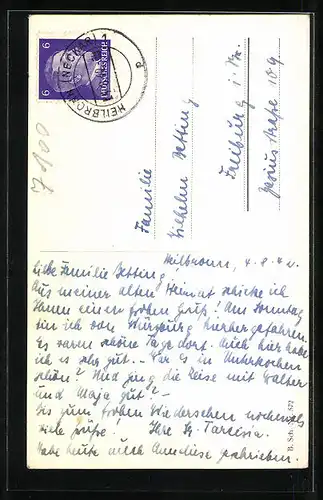 6 DEUTSCHES REICH 6
HEILBRONN (NECKAR) 1
a
7,00
Familie
Wilhelm Betting
Freiburg i. Br.
109
Heilbronn, 4. 8. 42.
Liebe Familie Betting!
Aus meiner alten Heimat schicke ich
Ihnen einen frohen Gruß! Am Sonntag
bin ich von Würzburg hierher gefahren.
Es waren schöne Tage dort. Auch hier habe
ich es sehr gut. War es in Unterkochen
schön? Und ging die Reise mit Walter
und Maja gut? –
Bis zum frohen Wiedersehen nochmals
viele Grüße! Ihre Sr. Tarcisia.
Habe heute auch Anneliese geschrieben.
B. Sch. 872